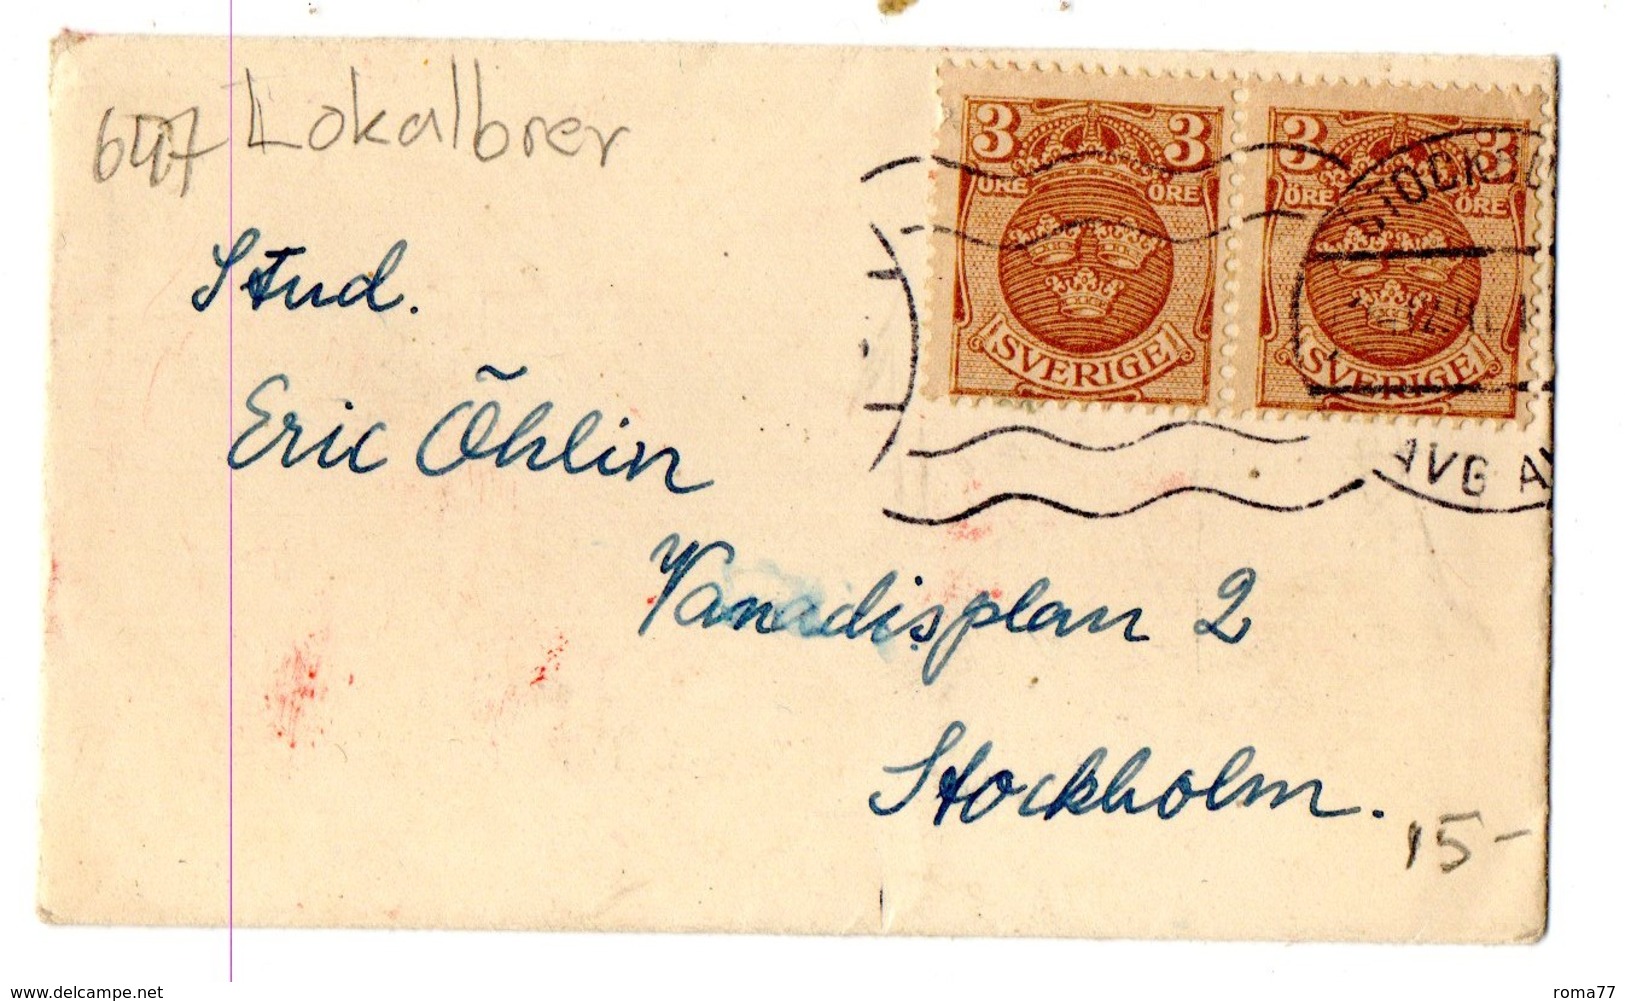 Lokalbrev
3 3 3 3
ÖRE ÖRE ÖRE ÖRE
SVERIGE SVERIGE
AVG
Stud.
Eric Öhlin
Vanadisplan 2
Stockholm.
15-
www.delcampe.net
roma77